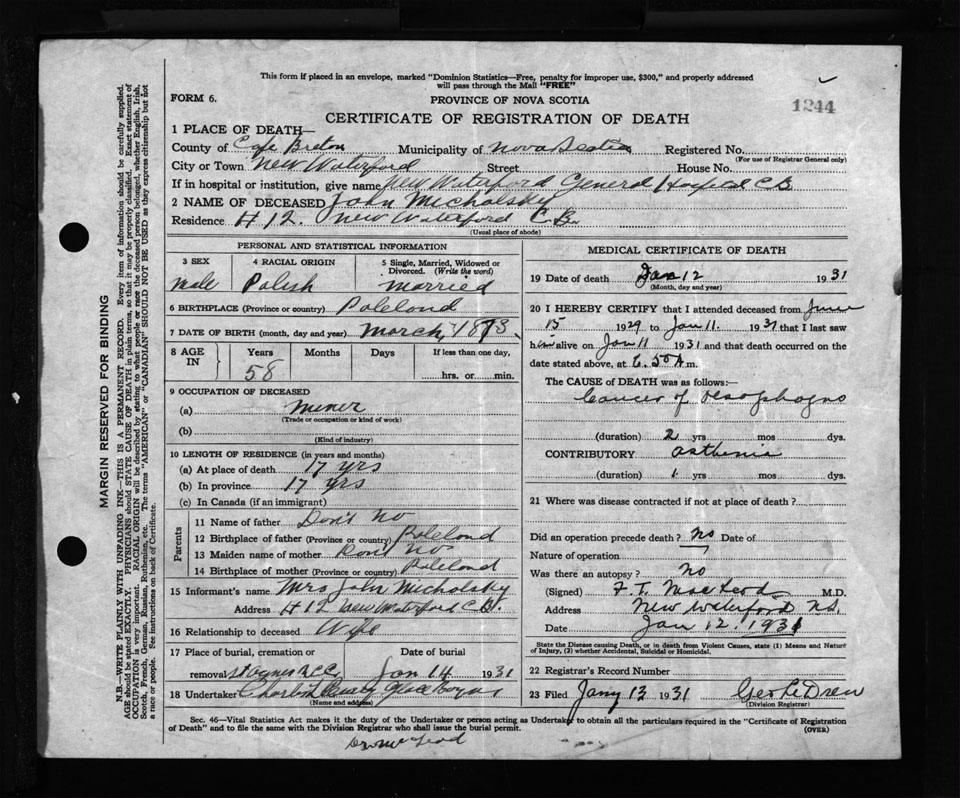 This form if placed in an envelope, marked "Dominion Statistics—Free, penalty for improper use, $300," and properly addressed
will pass through the Mail "FREE"
FORM 6.
PROVINCE OF NOVA SCOTIA
1244
CERTIFICATE OF REGISTRATION OF DEATH
1 PLACE OF DEATH—
County of Cape Breton Municipality of Nova Scotia Registered No.
(For use of Registrar General only)
City or Town New Waterford Street House No.
If in hospital or institution, give name New Waterford General Hospital C B
2 NAME OF DECEASED John Micholsky
Residence H 12. New Waterford C.B.
(Usual place of abode)
PERSONAL AND STATISTICAL INFORMATION
3 SEX
male
4 RACIAL ORIGIN
Polish
5 Single, Married, Widowed or
Divorced. (Write the word)
married
6 BIRTHPLACE (Province or country) Poleland
7 DATE OF BIRTH (month, day and year) March, 1873
8 AGE
IN
Years Months Days If less than one day,
58 hrs. or min.
9 OCCUPATION OF DECEASED
(a) miner
(Trade or occupation or kind of work)
(b)
(Kind of industry)
10 LENGTH OF RESIDENCE (in years and months)
(a) At place of death 17 yrs
(b) In province 17 yrs
(c) In Canada (if an immigrant)
Parents
11 Name of father Don't No
12 Birthplace of father (Province or country) Poleland
13 Maiden name of mother Dont No
14 Birthplace of mother (Province or country) Poleland
15 Informant's name Mrs John Micholsky
Address H 12 New Waterford C.B.
16 Relationship to deceased Wife
17 Place of burial, cremation or Date of burial
removal St Agnes R.C.C. Jan 14 1931
18 Undertaker Glace Bay
(Name and address)
MEDICAL CERTIFICATE OF DEATH
19 Date of death Jan 12 1931
(Month, day and year)
20 I HEREBY CERTIFY that I attended deceased from June
15 1929 to Jan 11. 1931 that I last saw
him alive on Jan 11 1931 and that death occurred on the
date stated above, at 6.50 A m.
The CAUSE OF DEATH was as follows:
Cancer of Oesophagus
(duration) 2 yrs mos dys.
CONTRIBUTORY asthenia
(duration) 1 yrs mos dys.
21 Where was disease contracted if not at place of death?
Did an operation precede death? no Date of
Nature of operation
Was there an autopsy? no
(Signed) F. T. MacLeod M.D.
Address New Waterford N.S.
Date Jan 12. 1931
State the Disease causing Death, or in death from Violent Causes, state (1) Means and Nature
of Injury, (2) whether Accidental, Suicidal or Homicidal.
22 Registrar's Record Number
23 Filed Jany 13 1931 Geo LeDrew
(Division Registrar)
Sec. 46—Vital Statistics Act makes it the duty of the Undertaker or person acting as Undertaker to obtain all the particulars required in the "Certificate of Registration
of Death" and to file the same with the Division Registrar who shall issue the burial permit. (OVER)
MARGIN RESERVED FOR BINDING
N.B.—WRITE PLAINLY WITH UNFADING INK—THIS IS A PERMANENT RECORD. Every item of information should be carefully supplied.
AGE should be stated EXACTLY. PHYSICIANS should STATE CAUSE OF DEATH in plain terms, so that it may be properly classified. Exact statement of
OCCUPATION is very important. RACIAL ORIGIN will be described by stating to what people or race the deceased person belonged, whether English, Irish,
Scotch, French, German, Russian, Ruthenian, etc. The terms "AMERICAN" or "CANADIAN" SHOULD NOT BE USED as they express citizenship but not
a race or people. See instructions on back of Certificate.